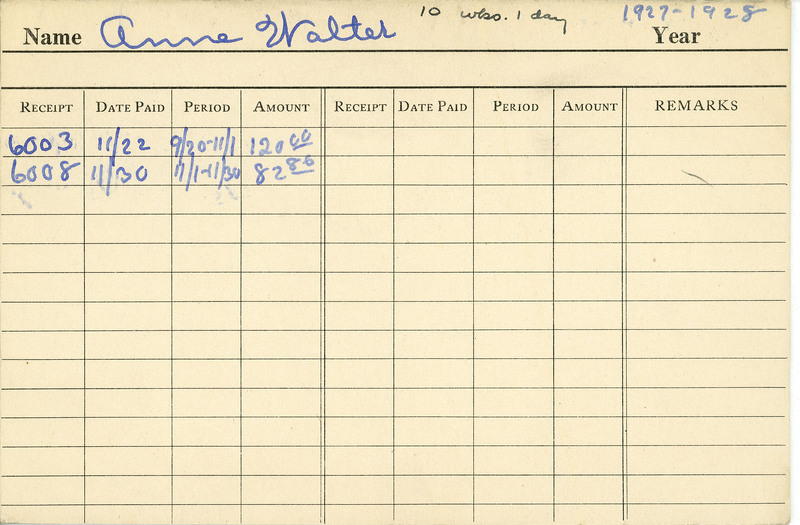 Name Anne Walter 10 wks. 1 day 1927-1928 Year
RECEIPT DATE PAID PERIOD AMOUNT RECEIPT DATE PAID PERIOD AMOUNT REMARKS
6003 11/22 9/20-11/1 120 00
6008 11/30 11/1-11/30 82 86